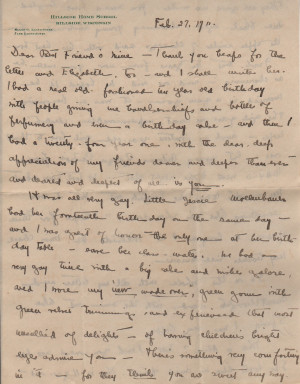 HILLSIDE HOME SCHOOL
HILLSIDE, WISCONSIN
Feb. 27, 1911.
Dear Best Friend o' Mine - Thank you heaps for the
letter and Elizabeth, too - and I shall write her.
I had a real old-fashioned ten year old birthday
with people giving me handkerchiefs and bottles of
perfumery and even a birthday cake - and then I
had a twenty-four year one - with the dear, deep
appreciation of my friends dearer and deeper than ever
and dearest and deepest of all is you.
It was all very gay. Little Jessie
had her fourteenth birthday on the same day -
and I was guest of honor - the only one at her birth-
day table - save her class-mates. We had an
very gay time with a big cake and smiles galore.
and I wore my new made over, green gown with
green velvet trimming - and experienced that most
unalloyed of delights - of having children's bright
eyes admire you - There's something very comforting
in it - for they think you are sweet any way.